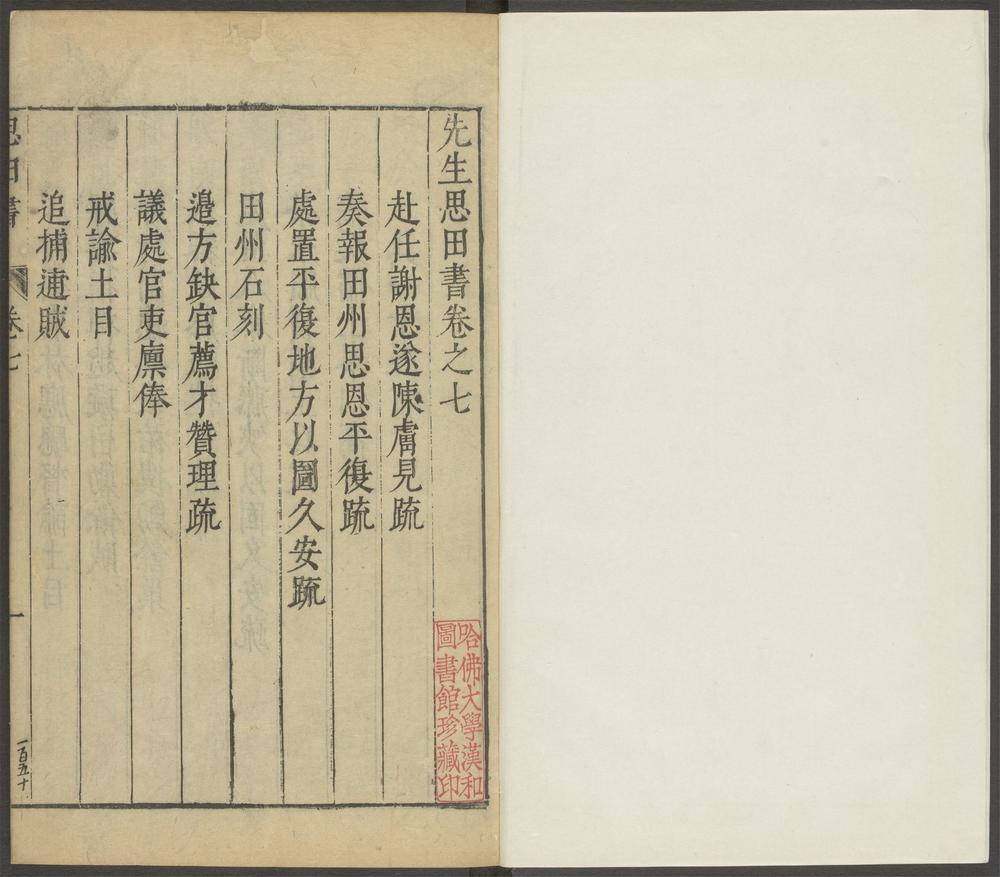 先生思田書卷之七
赴任謝恩遂陳膚見疏
奏報田州思恩平復疏
處置平復地方以圖久安疏
田州石刻
邊方缺官薦才贊理疏
議處官吏廩俸
戒諭土目
追捕逋賊
思田書 卷七 一
一百五十
哈佛大學漢和
圖書館珍藏印